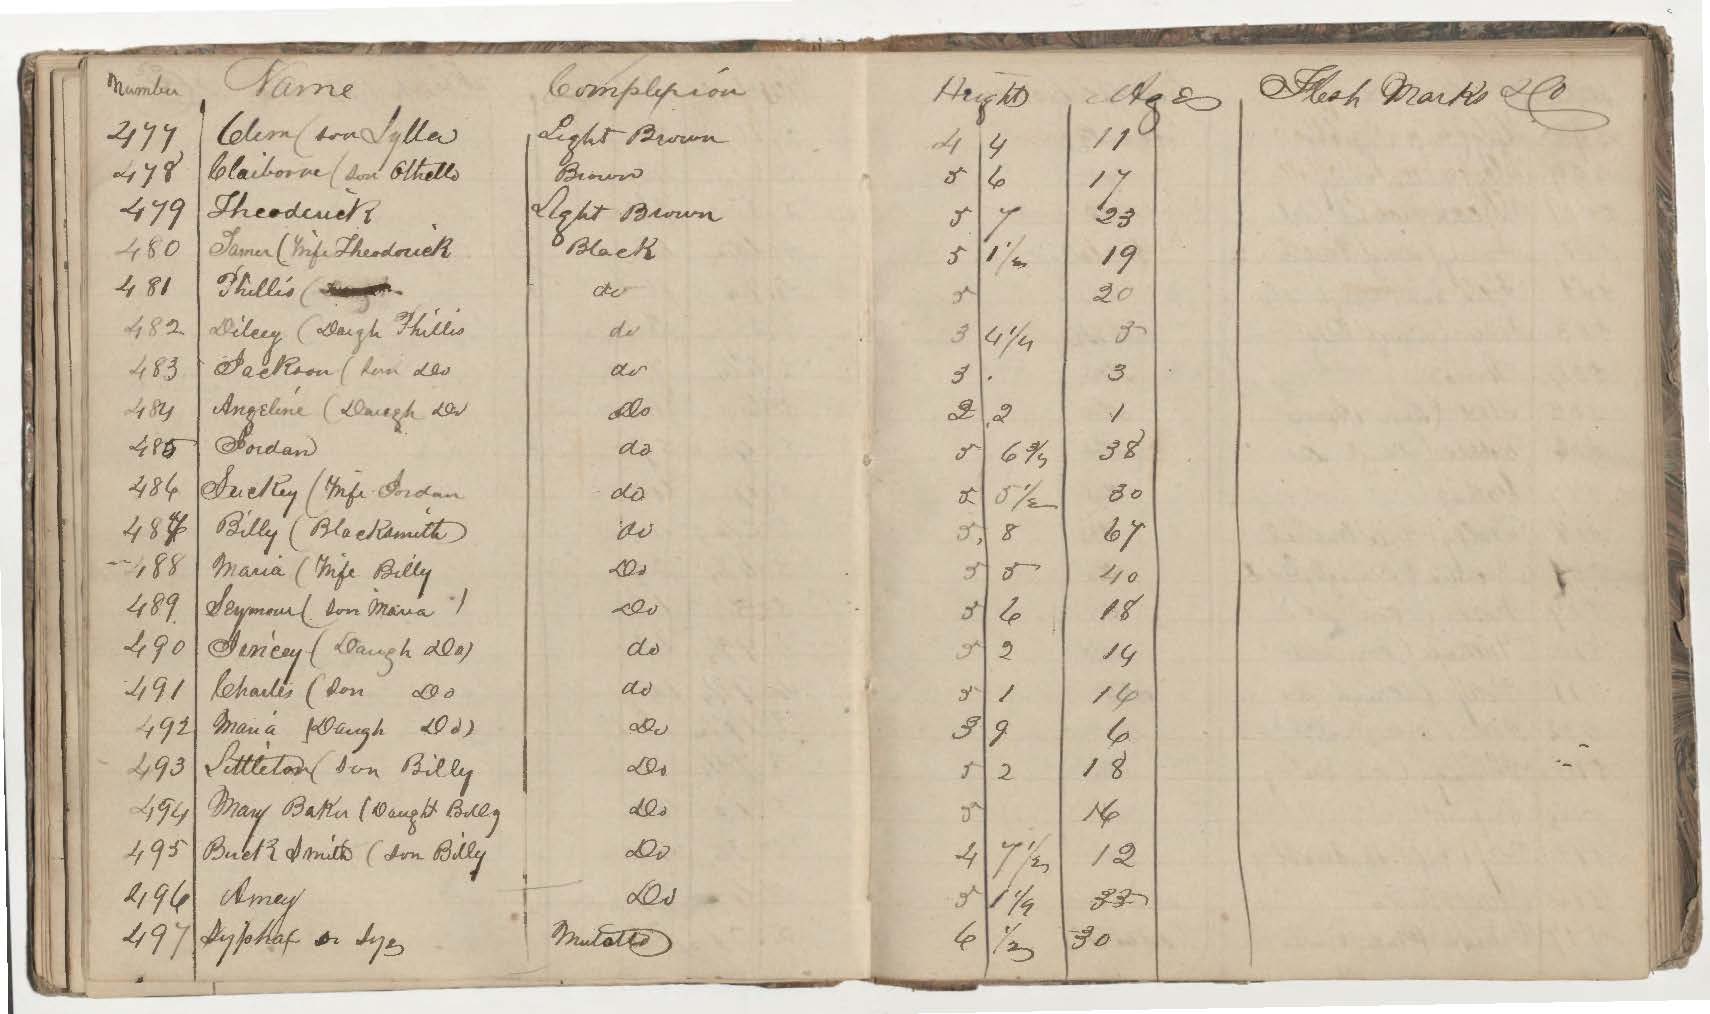 Number Name Complexion Height Ages Flesh Marks &c
477 Clem (son Sylla Light Brown 4 4 11
478 Claiborne (son Othello Brown 5 6 17
479 Theoderick Light Brown 5 7 23
480 (Wife Theodorick Black 5 1 1/2 19
481 Phillis ( do 5 20
482 Dilcey (Daugh Phillis do 3 4 1/4 5
483 Jackson (son Do do 3 . 3
484 Angeline (Daugh Do Do 2 2 1
485 Jordan do 5 6 3/4 38
486 Suckey (Wife Jordan do 5 5 1/2 30
487 Billy (Blacksmith) do 5, 8 67
488 Maria (Wife Billy Do 5 5 40
489 Seymour (son Maria ) Do 5 6 18
490 Jincey (Daugh Do) do 5 2 14
491 Charles (son Do do 5 1
492 Maria (Daugh Do) Do 3 9 6
493 Littleton (son Billy Do 5 2 18
494 Mary Baker (Daught Billy Do 5 16
495 Buck Smith (son Billy Do 4 7 1/2 12
496 Amey Do 5 1 1/4 35
497 or Sye Mulatto 6 1/2 30